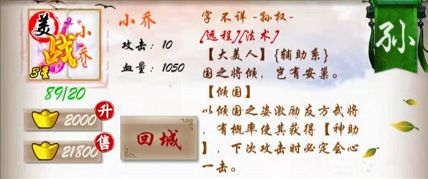 美
战
小乔
3星
89/20
2000
升
21800
售
小乔
攻击：10
血量：1050
回城
字 不详-孙权-
[远程][法术]
【大美人】{辅助系}
国之将倾，岂有安巢。
【倾国】
以倾国之姿激励友方武将
，有概率使其获得【神助
】，下次攻击时必定会心
一击。
孙